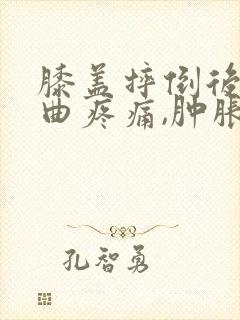 膝盖摔倒後
曲疼痛,肿胀
孔智勇